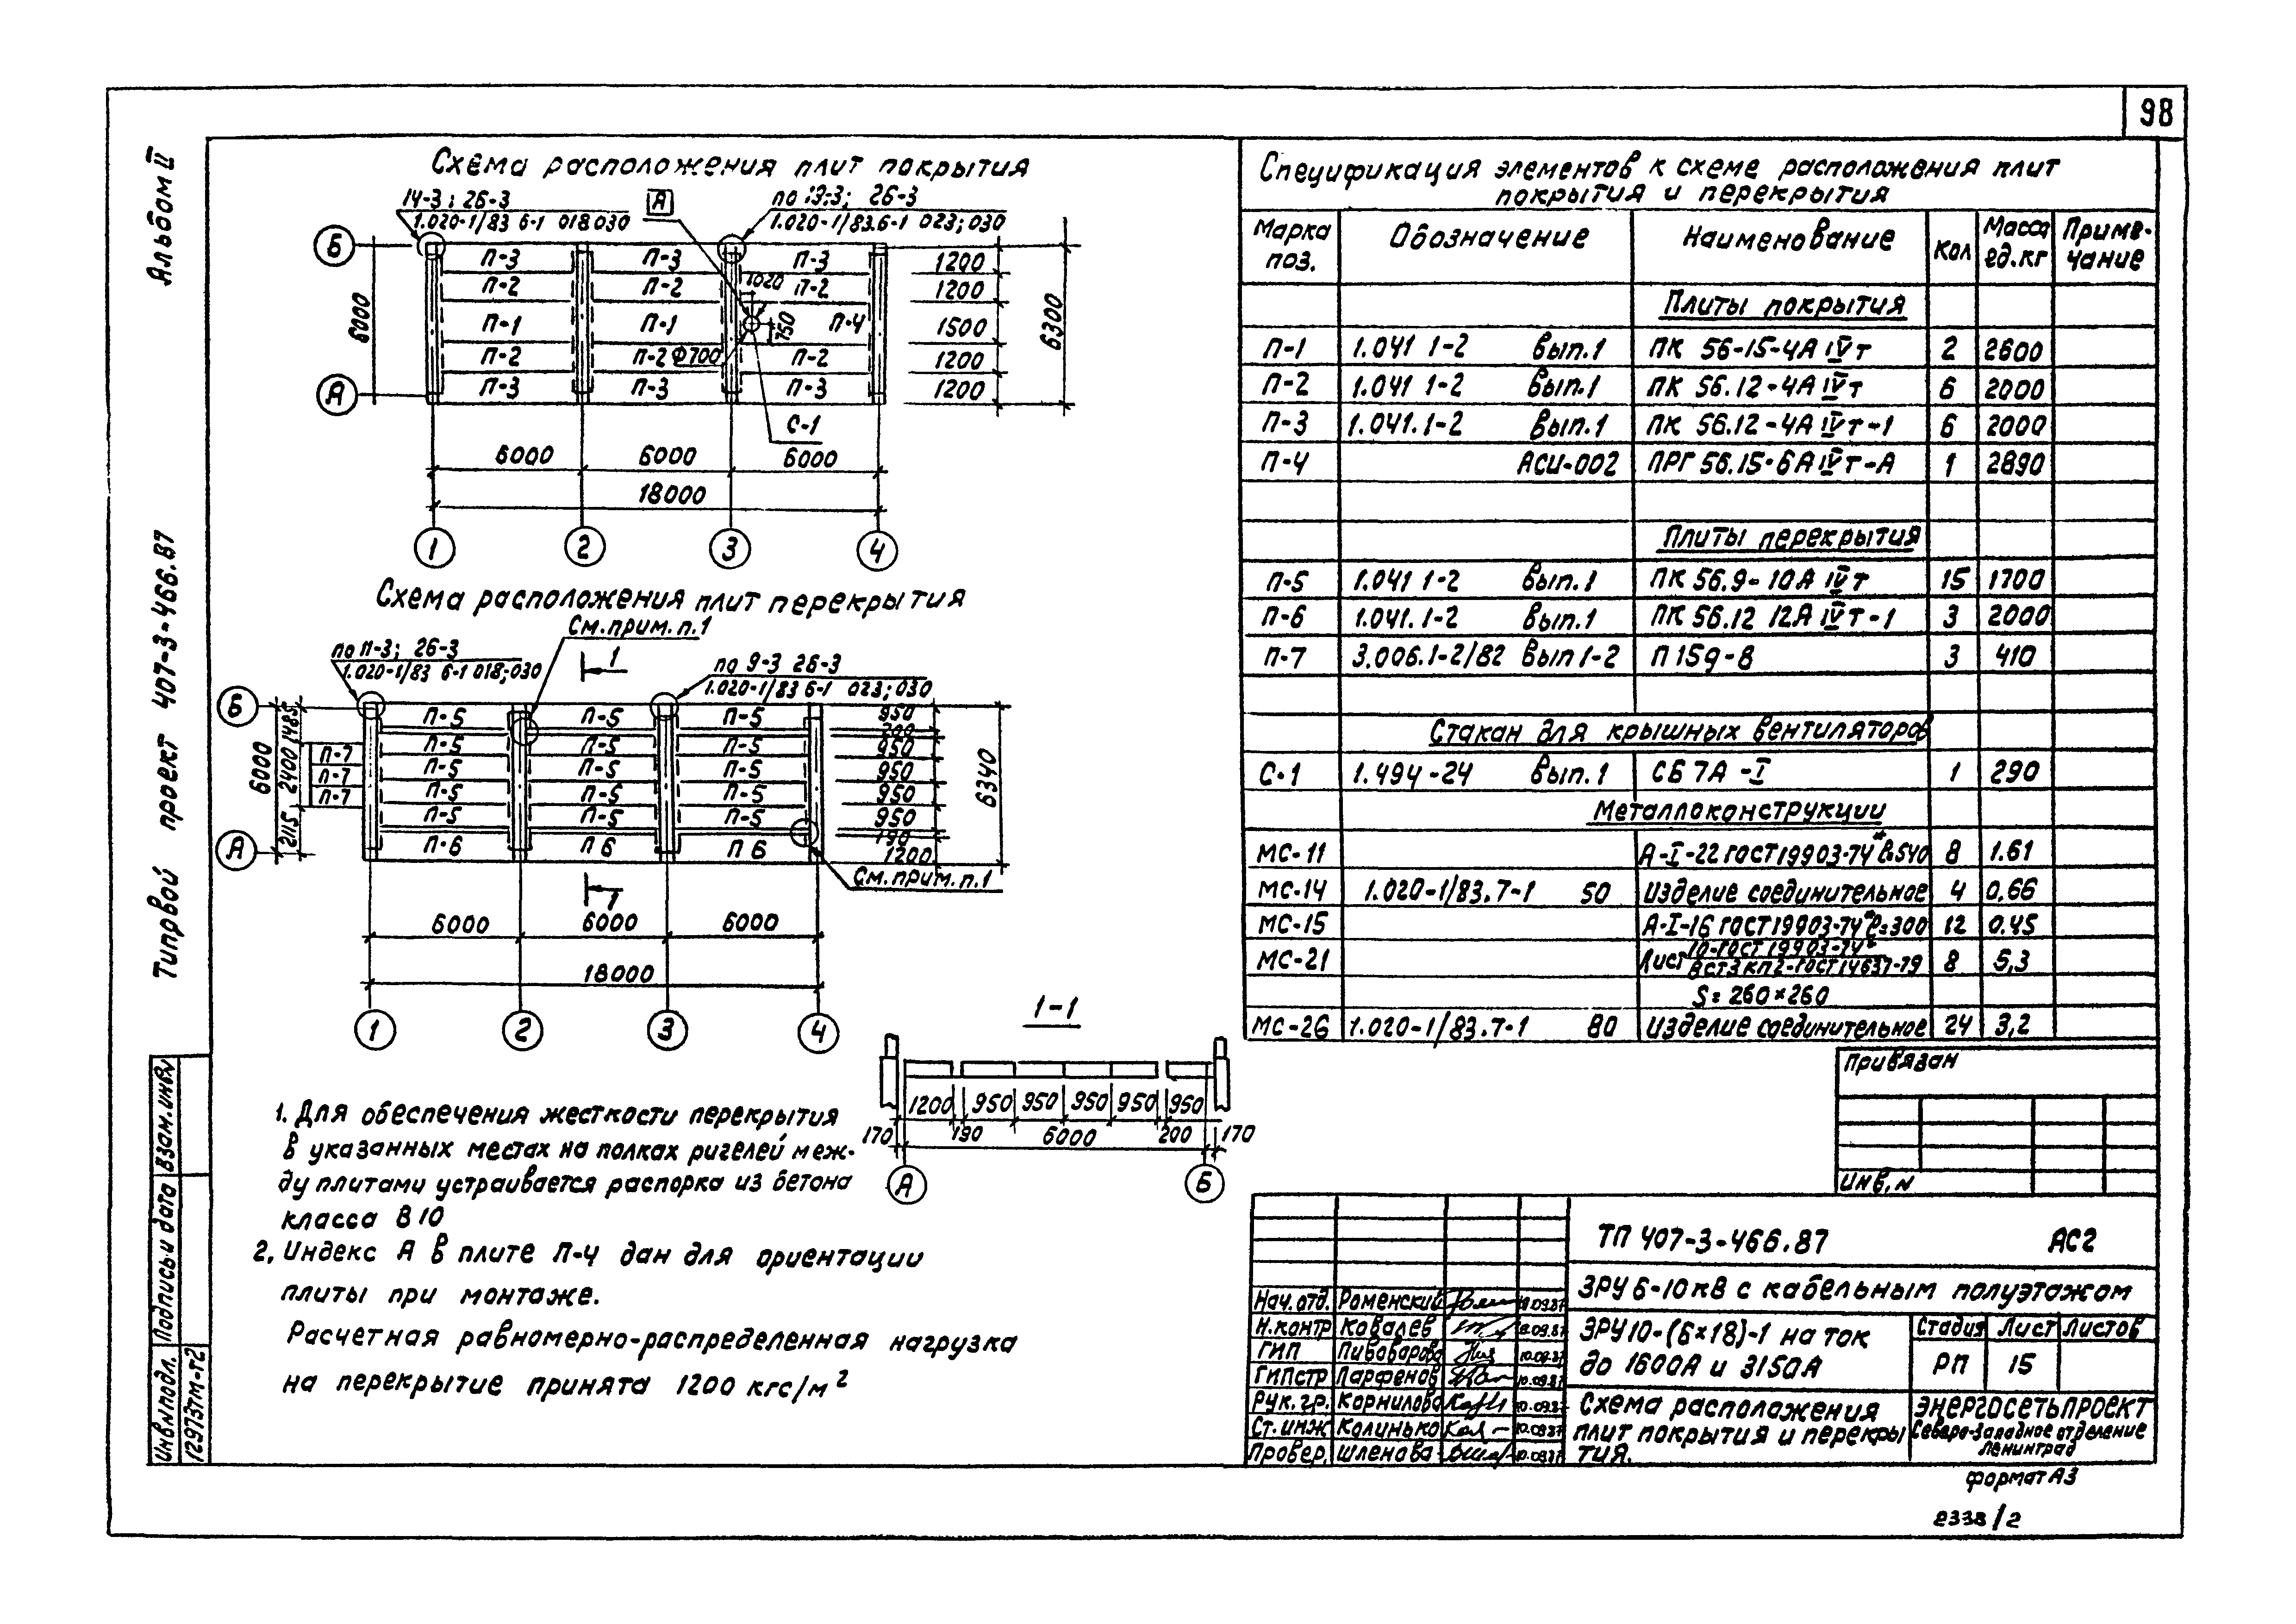 98
Альбом II
Типовой проект 407-3-466.87
Схема расположения плит покрытия
14-3; 26-3
1.020-1/83 6-1 018 030
А
по 19-3; 26-3
1.020-1/83.6-1 023; 030
Б
А
6000
П-3 П-3 П-3
П-2 П-2 П-2
П-1 П-1 П-4
П-2 П-2 П-2
П-3 П-3 П-3
1020
750
Ф700
С-1
1200
1200
1500
1200
1200
6300
6000 6000 6000
18000
1 2 3 4
Схема расположения плит перекрытия
См. прим. п.1
по 11-3; 26-3
1.020-1/83 6-1 018;030
1
по 9-3 26-3
1.020-1/83 6-1 023; 030
Б
А
6000
1485
2400
2115
П-7
П-7
П-7
П-5 П-5 П-5
П-5 П-5 П-5
П-5 П-5 П-5
П-5 П-5 П-5
П-5 П-5 П-5
П-6 П 6 П 6
950
200
950
950
950
950
190
1200
6340
См. прим. п.1
1
6000 6000 6000
18000
1 2 3 4
1-1
1200 950 950 950 950 950
170 190 6000 200 170
А Б
1. Для обеспечения жесткости перекрытия
в указанных местах на полках ригелей меж-
ду плитами устраивается распорка из бетона
класса В10
2. Индекс А в плите П-4 дан для ориентации
плиты при монтаже.
Расчетная равномерно-распределенная нагрузка
на перекрытие принята 1200 кгс/м²
Спецификация элементов к схеме расположения плит
покрытия и перекрытия
Марка поз. Обозначение Наименование Кол Масса ед.кг Приме-чание
Плиты покрытия
П-1 1.041 1-2 вып.1 ПК 56-15-4А IVт 2 2600
П-2 1.041 1-2 вып.1 ПК 56.12-4А IVт 6 2000
П-3 1.041.1-2 вып.1 ПК 56.12-4А IVт-1 6 2000
П-4 АСИ-002 ПРГ 56.15-6А IVт-А 1 2890
Плиты перекрытия
П-5 1.041 1-2 вып.1 ПК 56.9-10А IVт 15 1700
П-6 1.041.1-2 вып.1 ПК 56.12 12А IVт-1 3 2000
П-7 3.006.1-2/82 вып 1-2 П 15д-8 3 410
Стакан для крышных вентиляторов
С-1 1.494-24 вып.1 СБ 7А-I 1 290
Металлоконструкции
МС-11 А-I-22 ГОСТ 19903-74* ℓ=540 8 1.61
МС-14 1.020-1/83.7-1 50 Изделие соединительное 4 0,66
МС-15 А-I-16 ГОСТ 19903-74* ℓ=300 12 0.45
МС-21 Лист 10-ГОСТ 19903-74* ВСТ3 КП2-ГОСТ 14637-79 8 5,3
S=260×260
МС-26 1.020-1/83.7-1 80 Изделие соединительное 24 3,2
Привязан
Инв. N
ТП 407-3-466.87 АС2
ЗРУ 6-10 кВ с кабельным полуэтажом
ЗРУ10-(6×18)-1 на ток
до 1600А и 3150А
Стадия Лист Листов
РП 15
Схема расположения
плит покрытия и перекры
тия.
Энергосетьпроект
Северо-западное отделение
Ленинград
Нач. отд. Роменский 10.09.87
Н.контр Ковалев 10.09.87
ГИП Пивоварова 10.09.87
ГИПстр Парфенов 10.09.87
Рук. гр. Корнилова 10.09.87
Ст. инж Калинько 10.09.87
Провер. Шленова 10.09.87
Взам. инв N
Подпись и дата
Инв N подл.
12973тм-т2
формат А3
2338/2